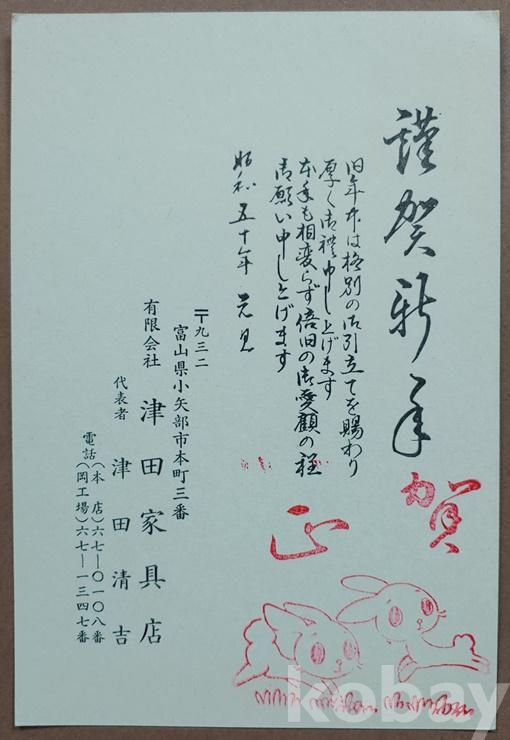 謹賀新年
旧年中は格別の御引立てを賜わり
厚く御禮申し上げます
本年も相変らず倍旧の御愛顧の程
御願い申し上げます
昭和五十年 元旦
〒九三二
富山県小矢部市本町三番
有限会社 津田家具店
代表者 津田清吉
電話(本店)六七―〇一〇八番
(岡工場)六七―一三四七番
賀
正
kobay